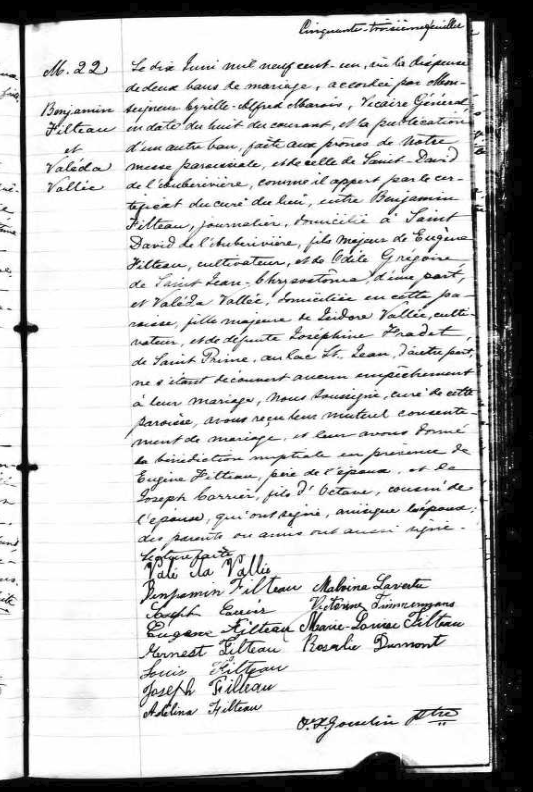 Cinquante-troisième feuillet
M. 22
Benjamin
Filteau
et
Valéda
Vallée
Le dix Juin mil neuf cent-un, vu la dispense
de deux bans de mariage, accordée par Mon-
seigneur Cyrille-Alfred Marois, Vicaire Général,
en date du huit du courant, et la publication
d'un autre ban, faite aux prônes de Notre
messe paroissiale, et de celle de Saint-David
de l'auberivière, comme il appert par le cer-
tificat du curé du lieu, entre Benjamin
Filteau, journalier, domicilié à Saint
David de l'auberivière, fils majeur de Eugène
Filteau, cultivateur, et de Odile Grégoire
de Saint Jean-Chrysostôme, d'une part,
et Valéda Vallée, domiciliée en cette pa-
roisse, fille majeure de Isidore Vallée, culti-
vateur, et de défunte Joséphine Fradet,
de Saint Prime, au lac St. Jean, d'autre part,
ne s'étant découvert aucun empêchement
à leur mariage, Nous soussigné, curé de cette
paroisse, avons reçu leur mutuel consente-
ment de mariage, et leur avons donné
la bénédiction nuptiale en présence de
Eugène Filteau, père de l'époux, et de
Joseph Carrier, fils d'Octave, cousin de
l'épouse, qui ont signé, ainsi que les époux;
des parents ou amis ont aussi signé.
Lecture faite
Valéda Vallée
Benjamin Filteau Malvina Lavertu
Joseph Victorine Timmermans
Eugène Filteau Marie-Louise Filteau
Ernest Filteau Rosalie Dumont
Louis Filteau
Joseph Filteau
Adelina Filteau
Gosselin Ptre